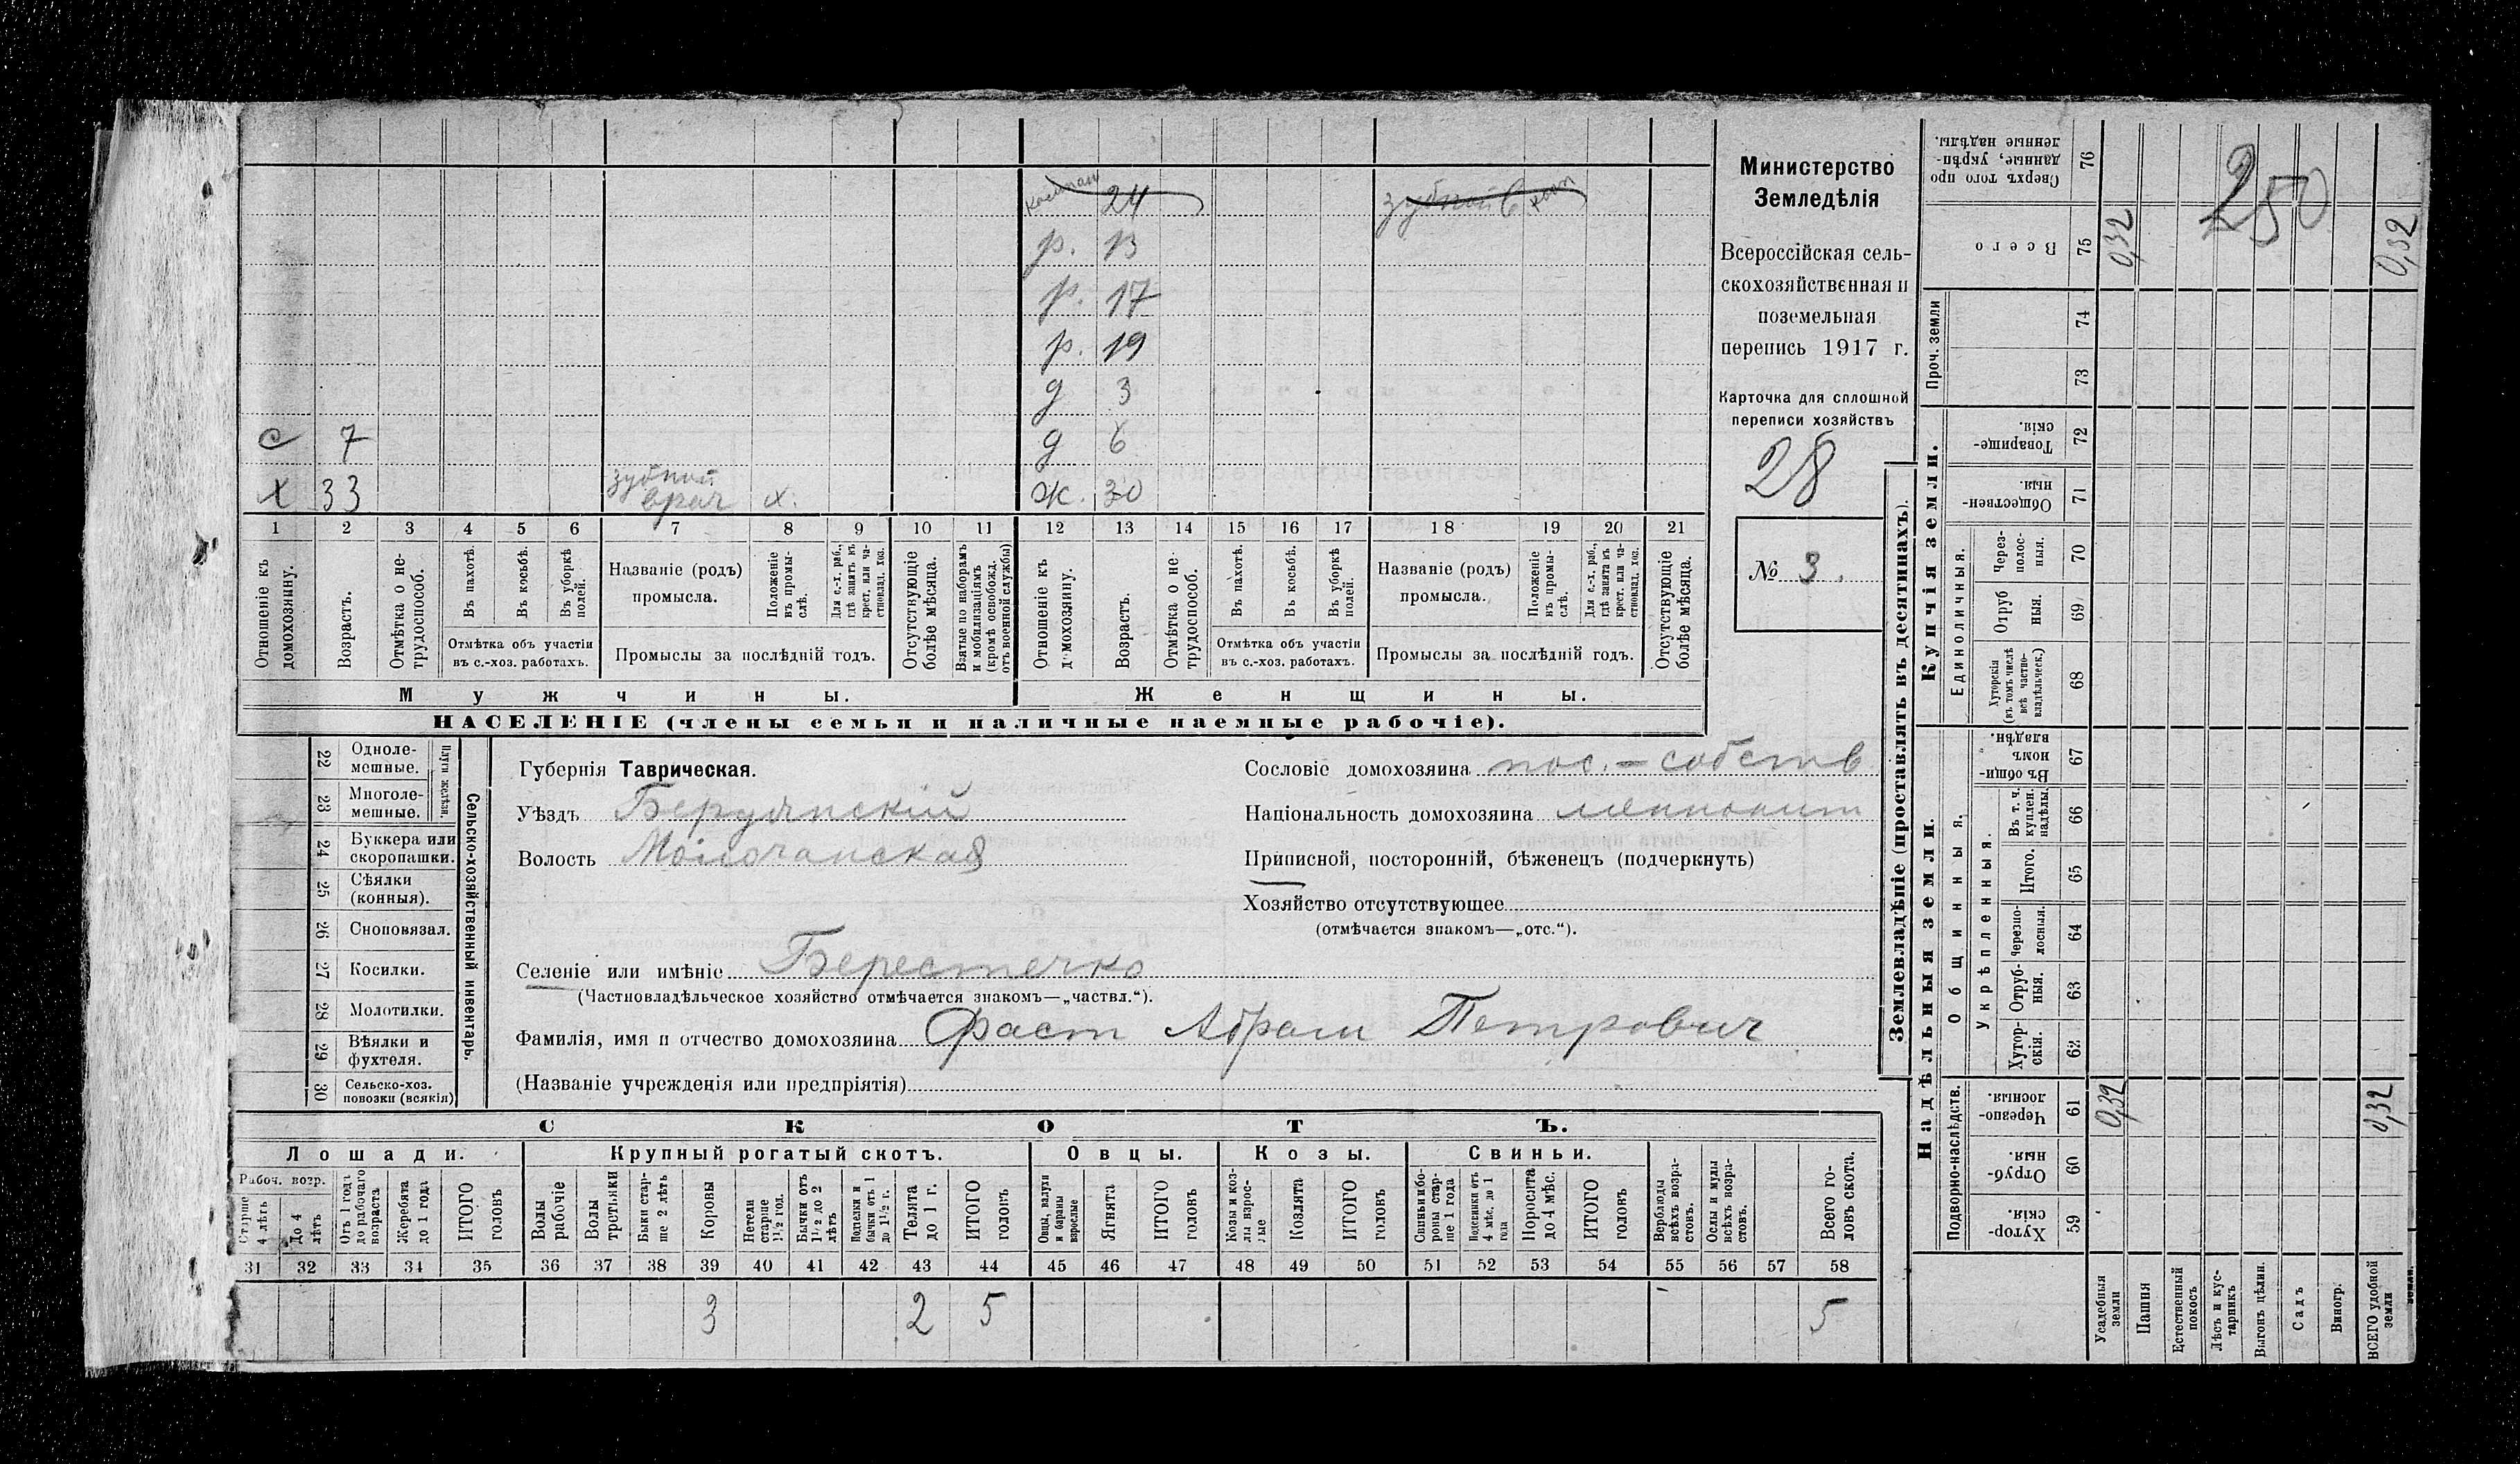 24 зубной
р. 13
р. 17
р. 19
д 3
с 7 д 6
х 33 зубной врач х. ж. 30
1 2 3 4 5 6 7 8 9 10 11 12 13 14 15 16 17 18 19 20 21
Отношеніе къ домохозяину.
Возрастъ.
Отмѣтка о нетрудоспособ.
Въ пахотѣ.
Въ косьбѣ.
Въ уборкѣ полей.
Отмѣтка объ участіи въ с.-хоз. работахъ.
Названіе (родъ) промысла.
Положеніе въ промыслѣ.
Для с.-х. раб., гдѣ занятъ въ крест. или частновлад. хоз.
Промыслы за послѣдній годъ.
Отсутствующіе болѣе мѣсяца.
Взятые по наборамъ и мобилизаціямъ (кромѣ освобожд. отъ военной службы)
Отношеніе къ домохозяину.
Возрастъ.
Отмѣтка о нетрудоспособ.
Въ пахотѣ.
Въ косьбѣ.
Въ уборкѣ полей.
Отмѣтка объ участіи въ с.-хоз. работахъ.
Названіе (родъ) промысла.
Положеніе въ промыслѣ.
Для с.-х. раб., гдѣ занята въ крест. или частновлад. хоз.
Промыслы за послѣдній годъ.
Отсутствующіе болѣе мѣсяца.
Мужчины. Женщины.
НАСЕЛЕНІЕ (члены семьи и наличные наемные рабочіе).
Министерство
Земледѣлія
Всероссійская сель-
скохозяйственная и
поземельная
перепись 1917 г.
Карточка для сплошной
переписи хозяйствъ
28
№ 3.
22 Одноле-
мешные.
23 Многоле-
мешные.
Плуги желѣзн.
24 Буккера или
скоропашки.
25 Сѣялки
(конныя).
26 Сноповязал.
27 Косилки.
28 Молотилки.
29 Вѣялки и
фухтеля.
30 Сельско-хоз.
повозки (всякія)
Сельско-хозяйственный инвентарь.
Губернія Таврическая.
Уѣздъ Бердянскій
Волость Молочанская
Сословіе домохозяина пос. - собств
Національность домохозяина меннонит
Приписной, посторонній, бѣженецъ (подчеркнуть)
Хозяйство отсутствующее
(отмѣчается знакомъ—„отс.“).
Селеніе или имѣніе Берестечко
(Частновладѣльческое хозяйство отмѣчается знакомъ—„частвл.“).
Фамилія, имя и отчество домохозяина Фаст Абрам Петрович
(Названіе учрежденія или предпріятія)
СКОТЪ.
Лошади. Крупный рогатый скотъ. Овцы. Козы. Свиньи.
Рабоч. возр.
Старше 4 лѣтъ
До 4 лѣтъ
Отъ 1 года до рабочаго возраста
Жеребята до 1 года
ИТОГО головъ
Волы рабочіе
Волы третьяки
Быки старше 2 лѣтъ
Коровы
Нетели старше 1½ год.
Бычки отъ 1½ до 2 лѣтъ
Подтелки и бычки отъ 1 до 1½ г.
Телята до 1 г.
ИТОГО головъ
Овцы, валухи и бараны взрослые
Ягнята
ИТОГО головъ
Козы и козлы взрослые
Козлята
ИТОГО головъ
Свиньи и бороны старше 1 года
Подсвинки отъ 4 мѣс. до 1 года
Поросята до 4 мѣс.
ИТОГО головъ
Верблюды всѣхъ возрастовъ.
Ослы и мулы всѣхъ возрастовъ.
Всего головъ скота.
31 32 33 34 35 36 37 38 39 40 41 42 43 44 45 46 47 48 49 50 51 52 53 54 55 56 57 58
3 2 5 5
Землевладѣніе (проставлять въ десятинахъ).
Сверхъ того проданные, укрѣпленные надѣлы. 76
Всего 75 0,32 0,32
250
Проч. земли 74 73
Купчія земли.
Товарищескія. 72
Общественныя. 71
Единоличныя.
Черезполосныя. 70
Отрубныя. 69
Хуторскія (въ томъ числѣ всѣ частновладѣльческ.) 68
Надѣльныя земли.
Общинныя.
Въ общинномъ владѣн. 67
Укрѣпленныя.
Въ т. ч. куплен. надѣлы. 66
Итого. 65
Черезполосныя. 64
Отрубныя. 63
Хуторскія. 62
Подворно-наслѣдств.
Черезполосныя. 61 0,32 0,32
Отрубныя. 60
Хуторскія. 59
Усадебныя земли
Пашня
Естественный покосъ
Лѣсъ и кустарникъ
Выгонъ цѣлин.
Садъ
Виногр.
ВСЕГО удобной земли